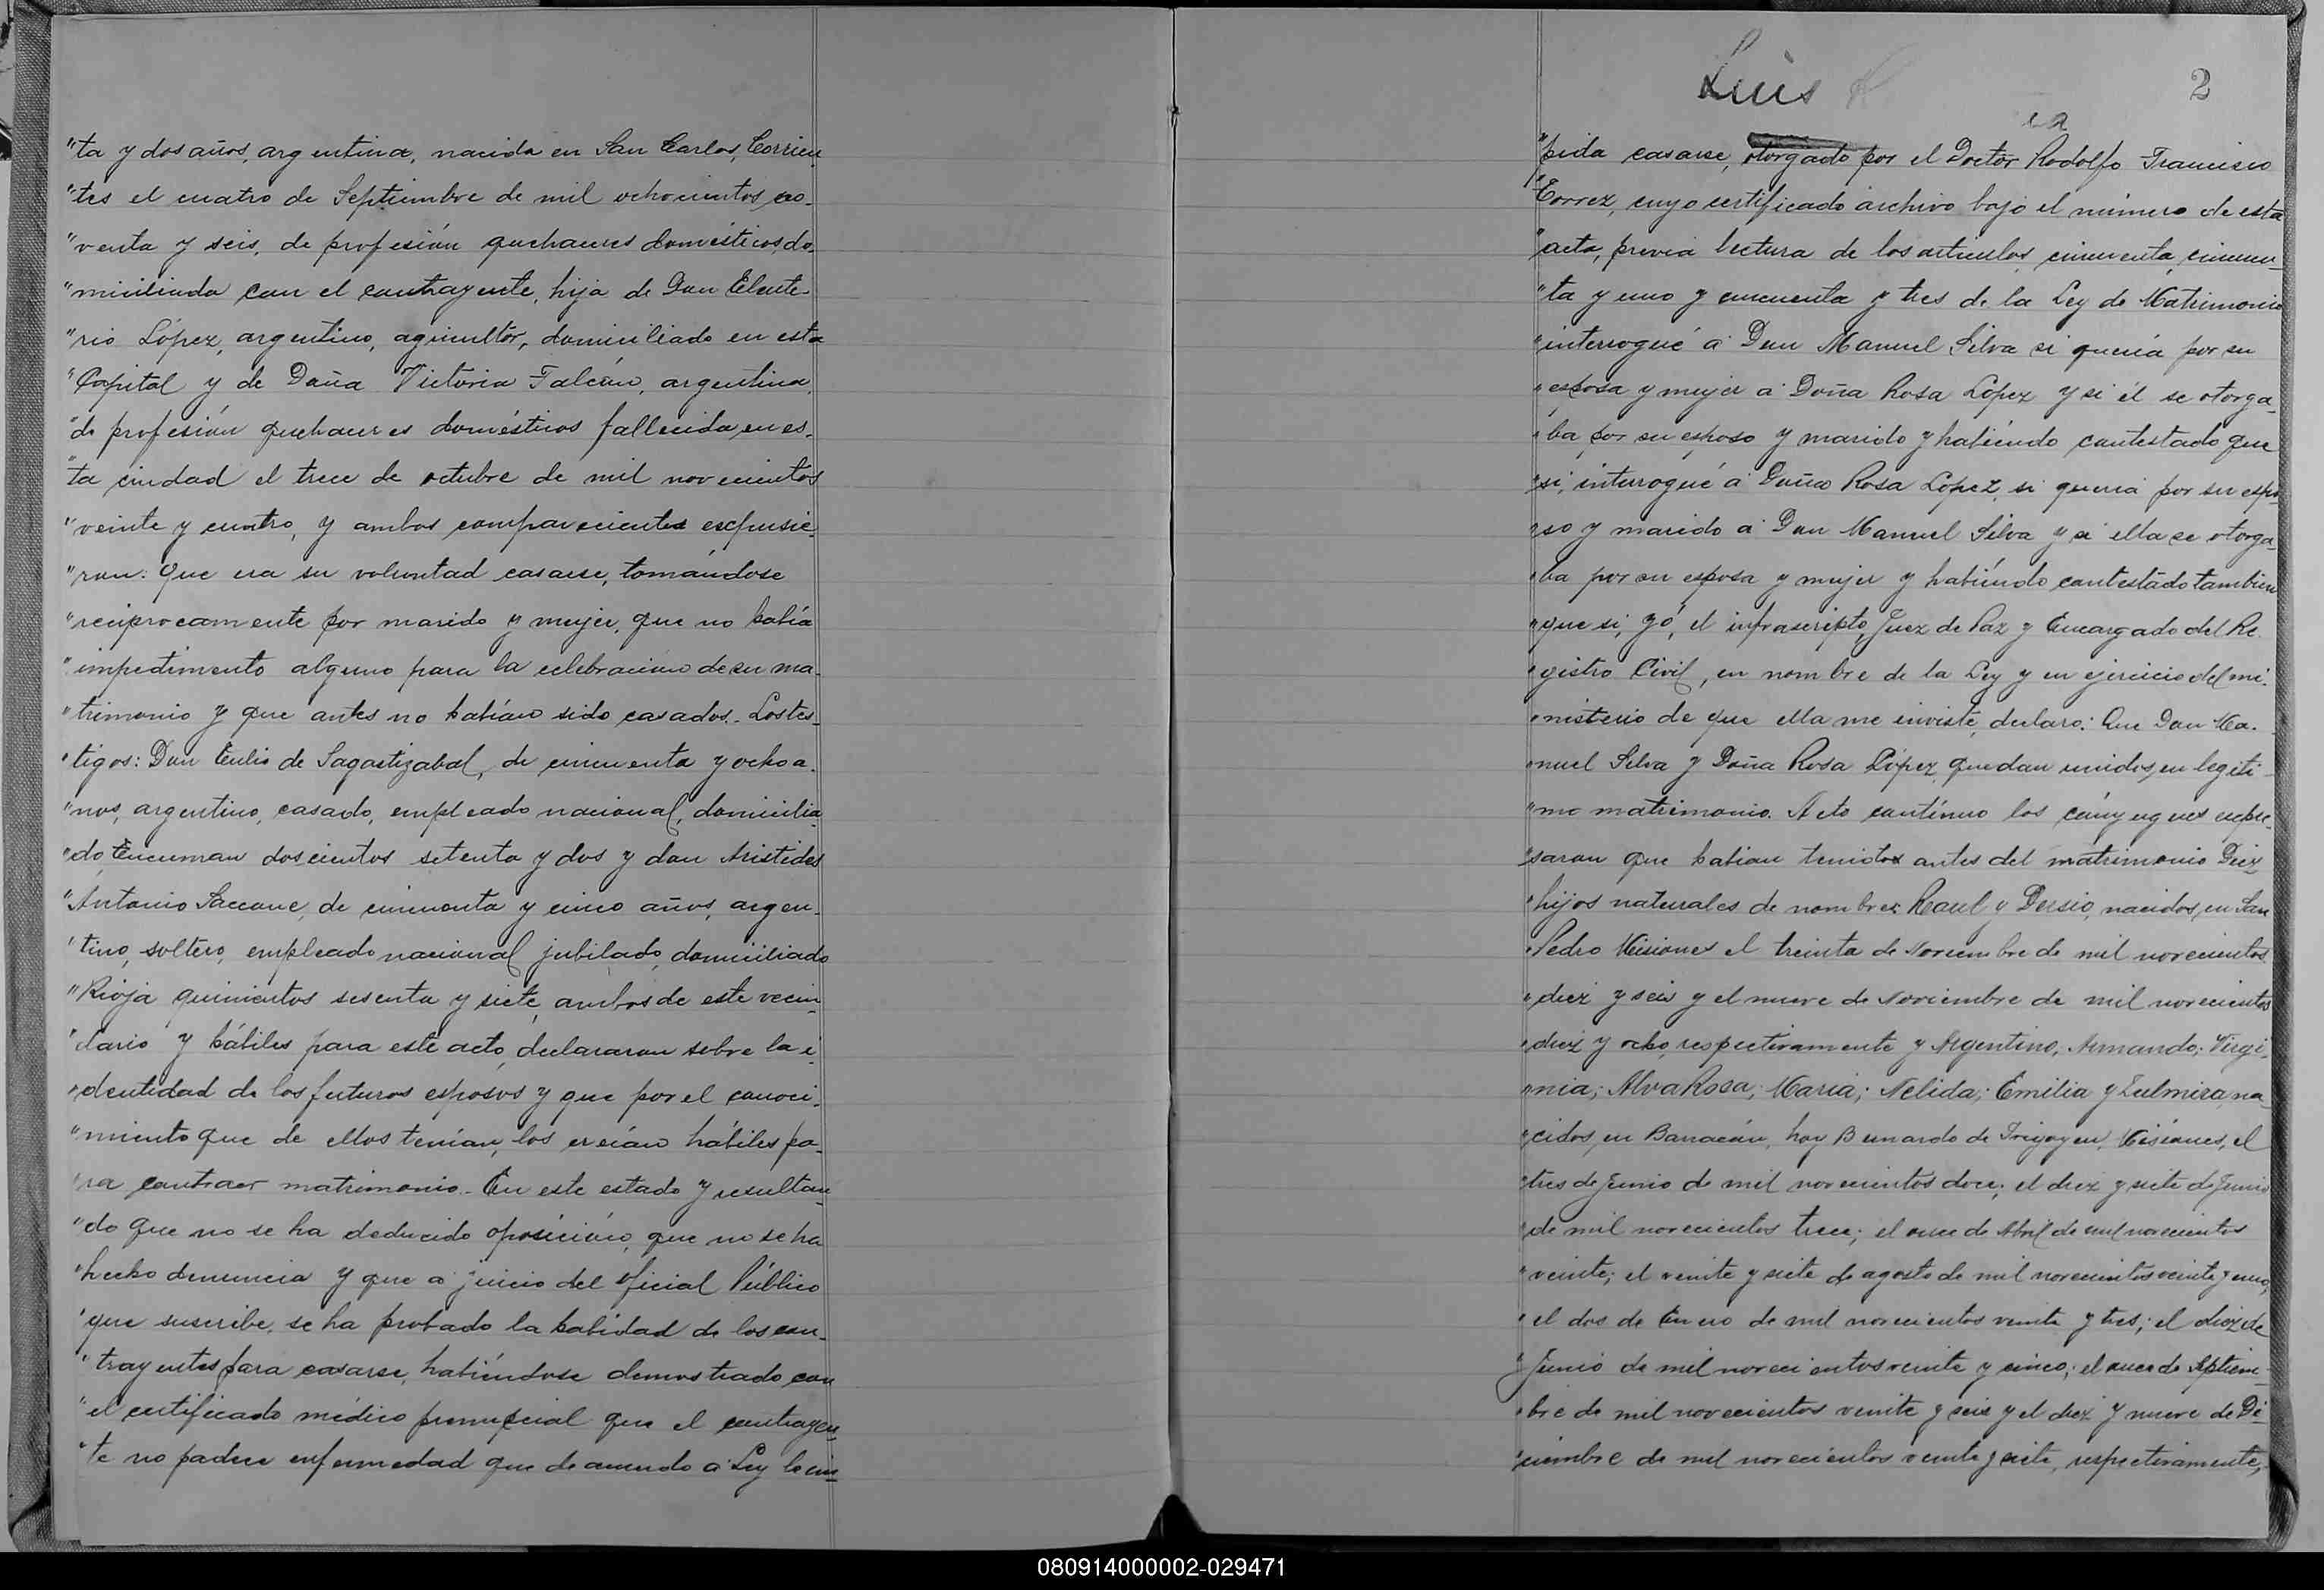 "ta y dos años, argentina, nacida en San Carlos, Corrien
"tes el cuatro de Septiembre de mil ochocientos no-
"venta y seis, de profesión quehaceres domésticos, do-
"miciliada con el contrayente, hija de Don Eleute-
"rio López, argentino, agricultor, domiciliado en esta
"Capital y de Doña Victoria Falcón, argentina,
"de profesión quehaceres domésticos fallecida en es-
"ta ciudad el trece de octubre de mil novecientos
"veinte y cuatro, y ambos comparecientes expusie-
"ron: Que era su voluntad casarse, tomándose
"reciprocamente por marido y mujer, que no había
"impedimento alguno para la celebración de su ma-
"trimonio y que antes no habían sido casados.- Los tes-
"tigos: Don de Sagastizabal, de cincuenta y ocho a-
"nos, argentino, casado, empleado nacional, domicilia-
"do, Tucuman doscientos setenta y dos y don Aristides
"Antonio Saccone, de cincuenta y cinco años, argen-
"tino, soltero, empleado nacional jubilado, domiciliado
"Rioja quinientos sesenta y siete, ambos de este vecin-
"dario y hábiles para este acto, declararon sobre la i-
"dentidad de los futuros esposos y que por el conoci-
"miento que de ellos tenían, los creían hábiles pa-
"ra contraer matrimonio.- En este estado y resultan-
"do que no se ha deducido oposición, que no se ha
"hecho denuncia y que a juicio del oficial Público
"que suscribe, se ha probado la habidad de los con-
"trayentes para casarse, habiéndose demostrado con
"el certificado médico prenupcial que el contrayen-
"te no padece enfermedad que de acuerdo a Ley le im-
Luis
2
la
"pida casarse, otorgado por el Doctor Rodolfo Francisco
"Torrez, cuyo certificado archivo bajo el número de esta
"acta, previa lectura de los articulos, cincuenta, cincuen-
"ta y uno y cincuenta y tres de la Ley de Matrimonio
"interrogué a Don Manuel Silva si quería por su
"esposa y mujer a Doña Rosa López y si él se otorga-
"ba por su esposo y marido y habiéndo contestado que
"si, interrogué a Doña Rosa Lopez, si quería por su espo-
"so y marido a Don Manuel Silva y si ella se otorga-
"ba por su esposa y mujer y habiéndo contestado tambien
"que si, yó, el infrascripto, Juez de Paz y Encargado del Re
"gistro Civil, en nombre de la Ley y en ejercicio del mi-
"nisterio de que ella me inviste, declaro: Que Don Ma-
"nuel Silva y Doña Rosa López, quedan unidos, en legiti-
"mo matrimonio. Acto contínuo los cónyugues expre-
"saron que habian tenidos antes del matrimonio Diez
"hijos naturales de nombres Raul y Dersio, nacidos, en San
"Pedro Misiones el treinta de Noviembre de mil novecientos
"diez y seis y el nueve de Noviembre de mil novecientos
"diez y ocho, respectivamente y Argentino, Armando; Virgi-
"nia; Alva Rosa; Maria; Nelida; Emilia y Zulmira, na-
"cidos, en Barracón, hoy Bernardo de Irigoyen, Misiones, el
"tres de Junio de mil novecientos doce; el diez y siete de Junio
"de mil novecientos trece; el once de Abril de mil novecientos
"veinte; el veinte y siete de agosto de mil novecientos veinte y uno;
"el dos de Enero de mil novecientos veinte y tres; el diez de
"Junio de mil novecientos veinte y cinco; el once de Septiem-
"bre de mil novecientos veinte y seis y el diez y nueve de Di-
"ciembre de mil novecientos veinte y siete, respectivamente,
080914000002-029471